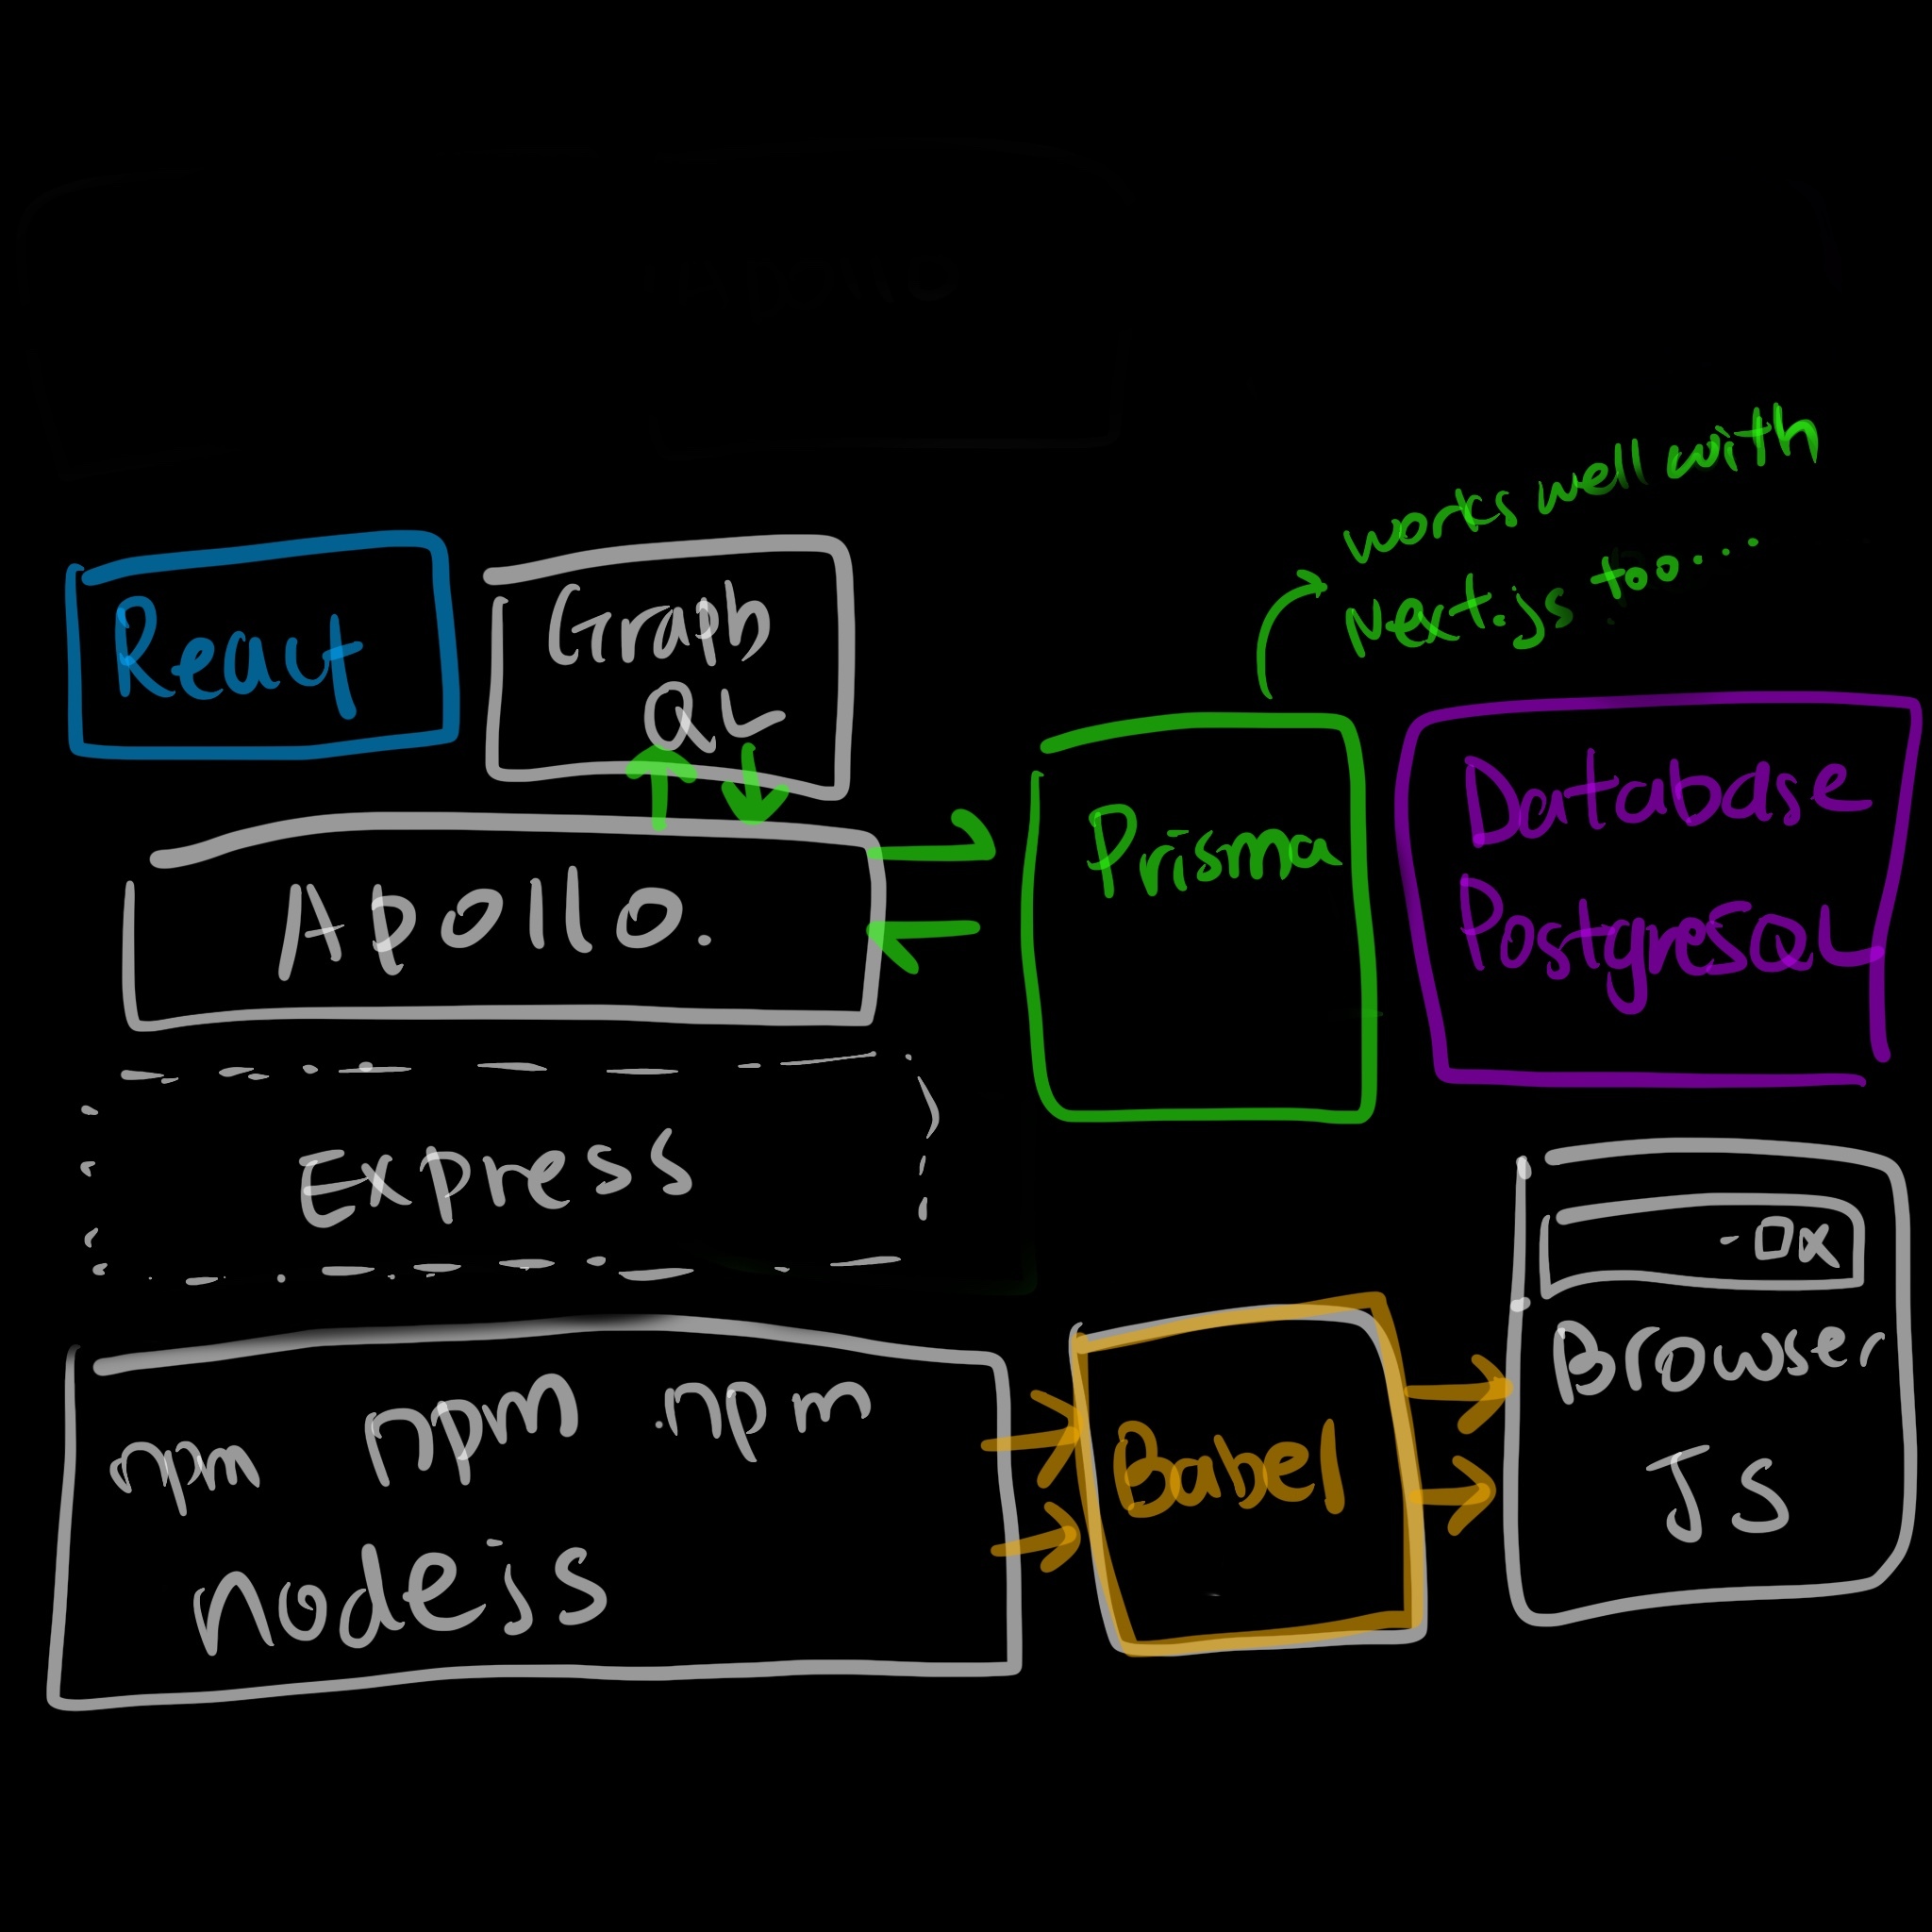 React
Graph
QL
works well with
Next.js too....
Apollo.
Prisma
Database
PostgresQL
Express
- □x
Browser
JS
npm npm .npm
nodejs
Babel